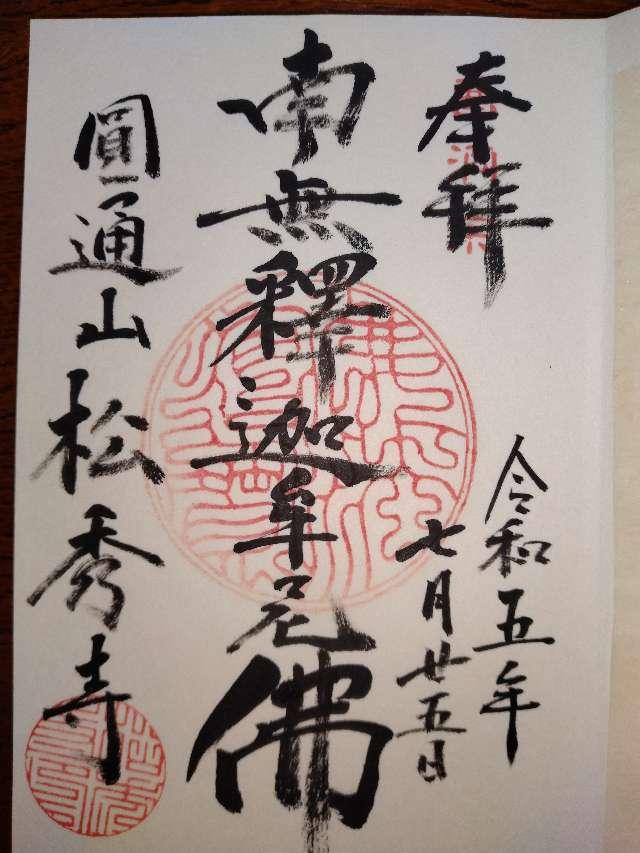 奉拜
令和五年
七月廿五日
南無釋迦牟尼佛
圓通山松秀寺